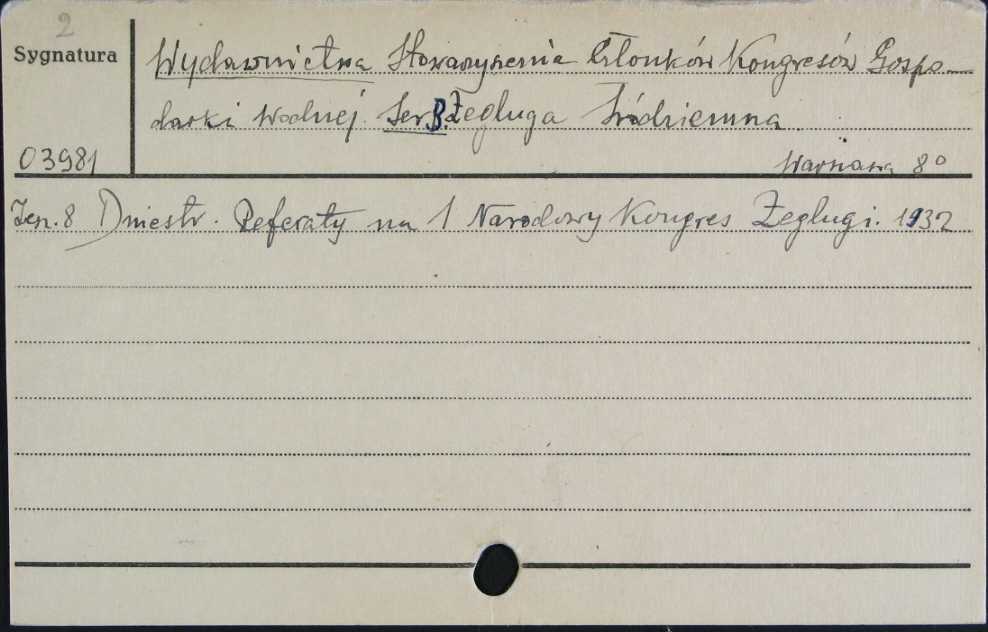 2
Sygnatura
Wydawnictwa Stowarzyszenia Członków Kongresów Gospo-
darki Wodnej. Ser. B. Żegluga Śródziemna
03981
Warszawa 8°
Zesz. 8 Dniestr. Referaty na I Narodowy Kongres Żeglugi. 1932